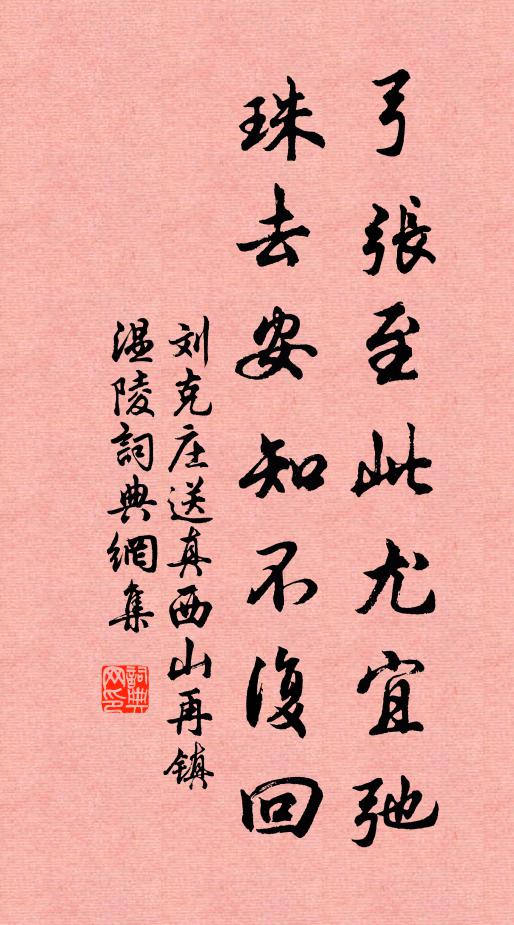 弓張至此尤宜弛
珠去安知不復回
刘克庄送真西山再镇
温陵詞典網集
詞典网印